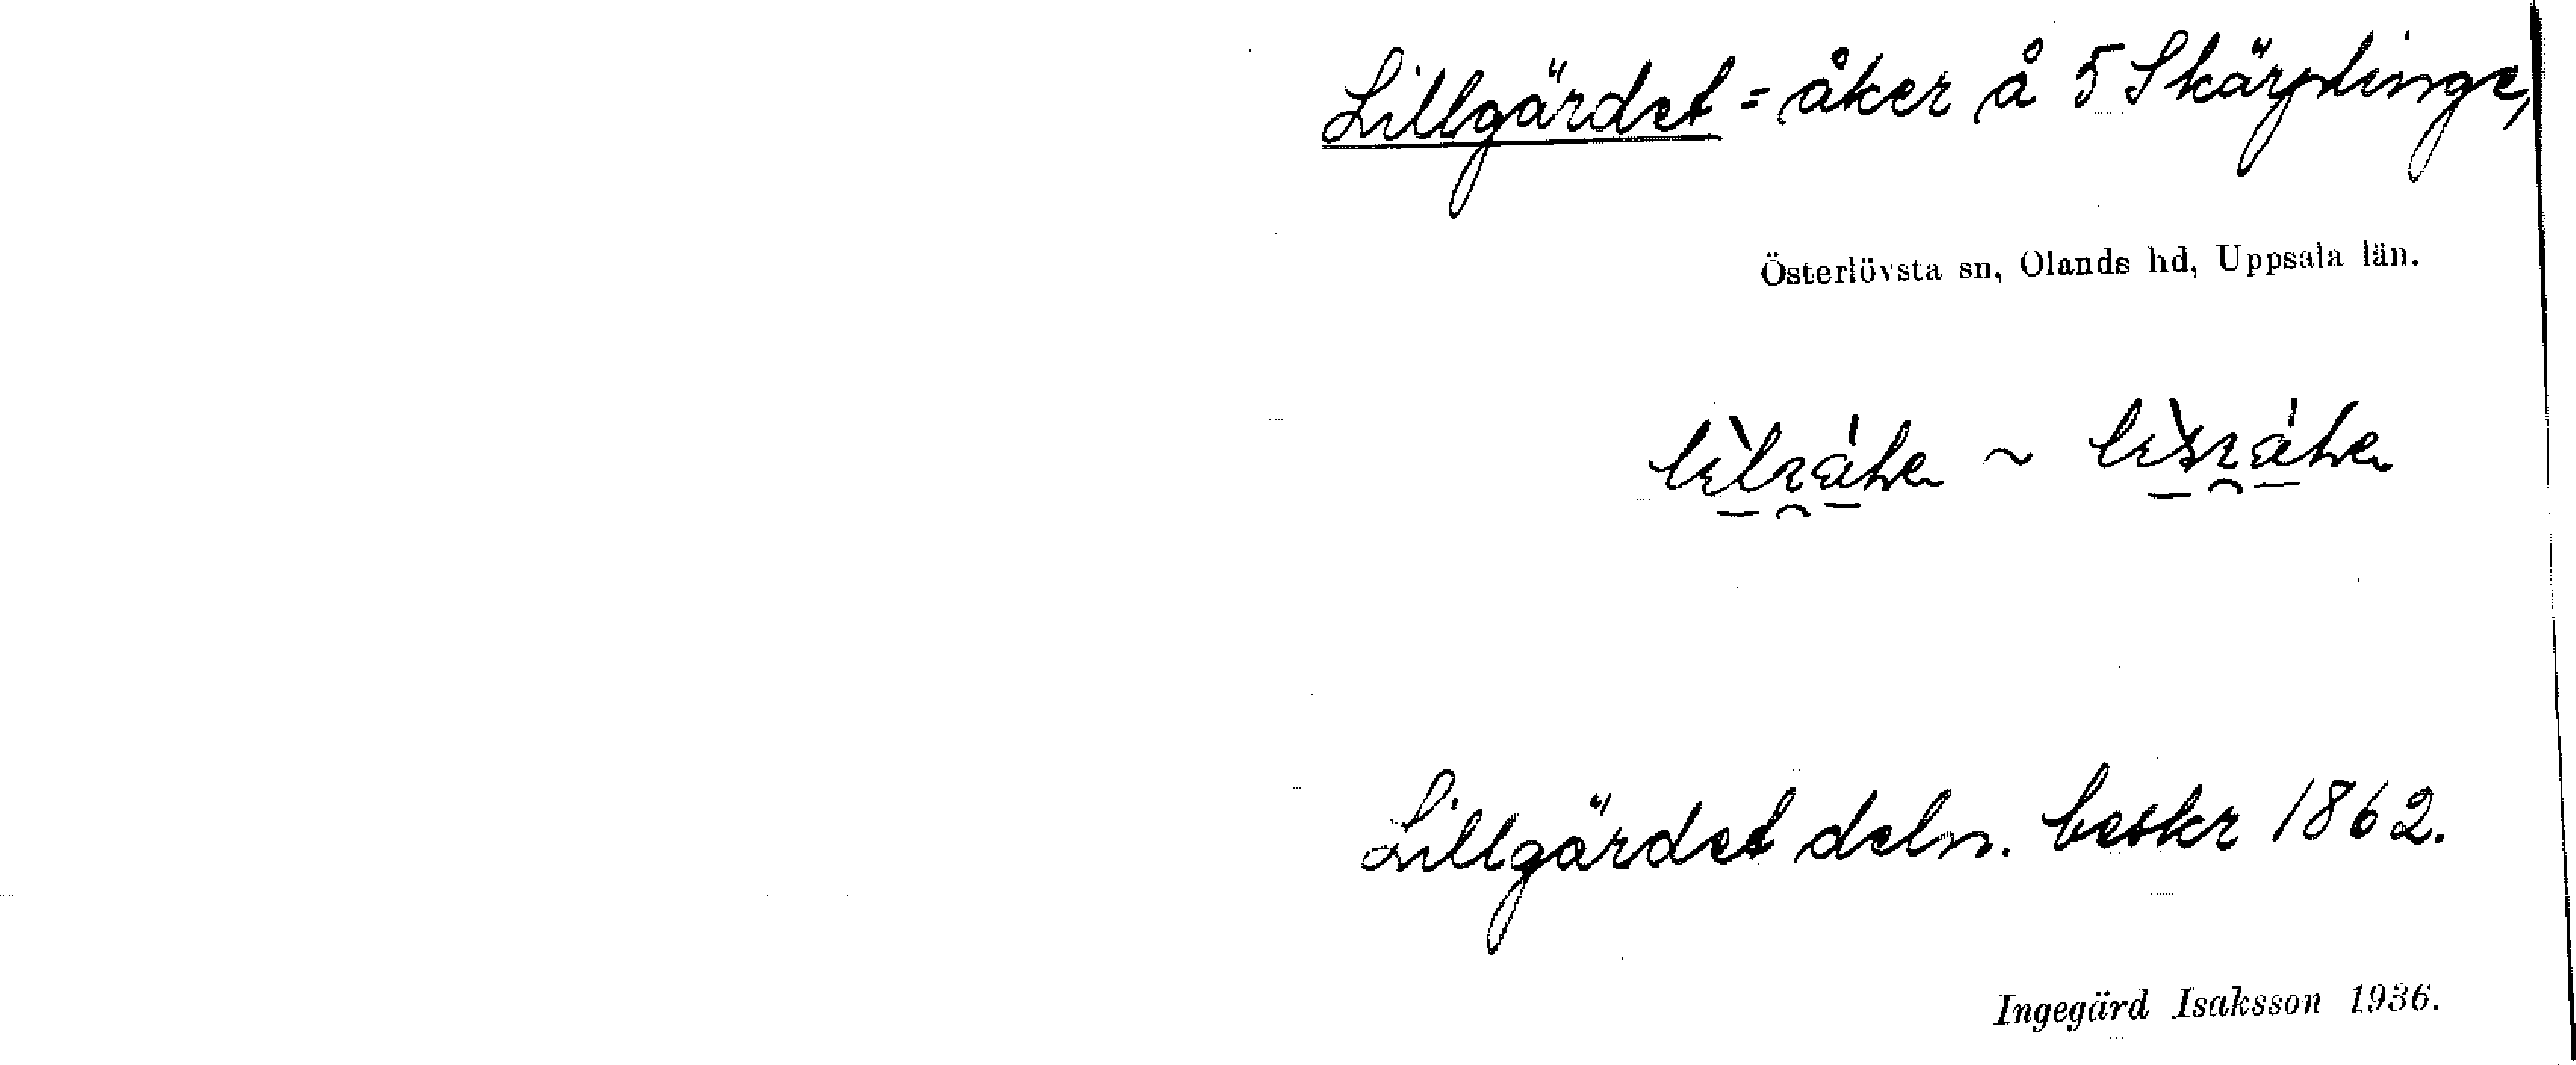 Lillgärdet = åker å 5 Skärplinge,
Österlövsta sn, Olands hd, Uppsala län.
Lillgärdet deln. beskr 1862.
Ingegärd Isaksson 1936.